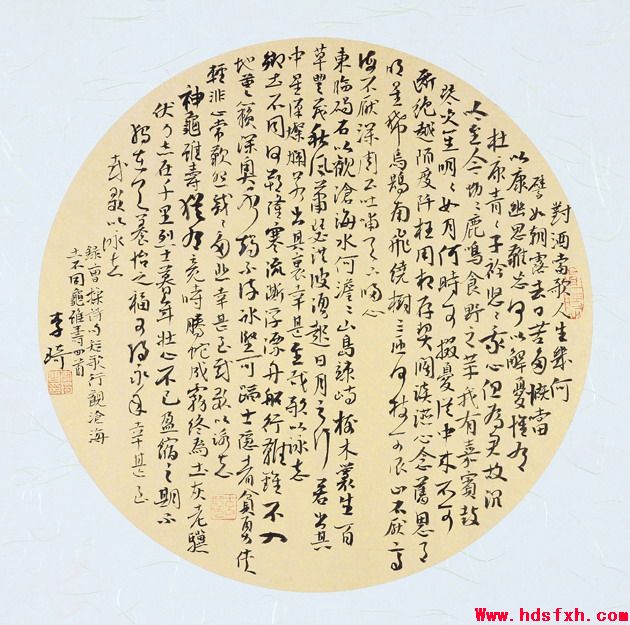 對酒當歌人生幾何
譬如朝露去日苦多慨當
以康幽思難忘何以解憂惟有
杜康青青子衿悠悠我心但為君故沉
吟至今呦呦鹿鳴食野之苹我有嘉賓鼓
瑟吹笙明明如月何時可掇憂從中來不可
斷絕越陌度阡枉用相存契闊談讌心念舊恩月
明星稀烏鵲南飛繞樹三匝何枝可依山不厭高
海不厭深周公吐哺天下歸心
東臨碣石以觀滄海水何澹澹山島竦峙樹木叢生百
草豐茂秋風蕭瑟洪波湧起日月之行若出其
中星漢燦爛若出其裏幸甚至哉歌以詠志
鄉土不同河朔隆寒流澌浮漂舟船行難錐不入
地蘴藾深奧水竭不流冰堅可蹈士隱者貧勇俠
輕非心常歎怨戚戚多悲幸甚至哉歌以詠志
神龜雖壽猶有竟時騰蛇成霧終為土灰老驥
伏櫪志在千里烈士暮年壯心不已盈縮之期不
獨在天養怡之福可得永年幸甚至
哉歌以詠志
錄曹操詩短歌行觀滄海
土不同龜雖壽四首
李琦
Www.hdsfxh.com